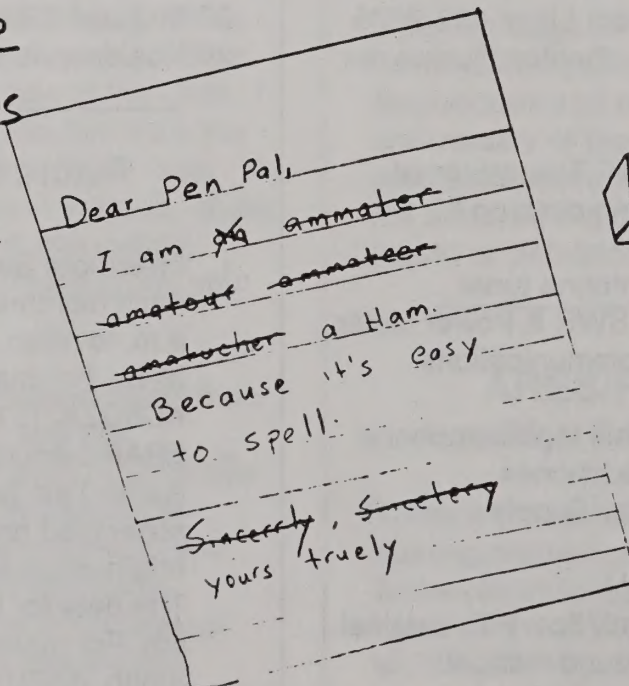 S
Dear Pen Pal,
I am an ammater
amatour ammateer
amatucher a Ham.
Because it's easy
to spell.
Sincerrly, Sincetery
yours truely